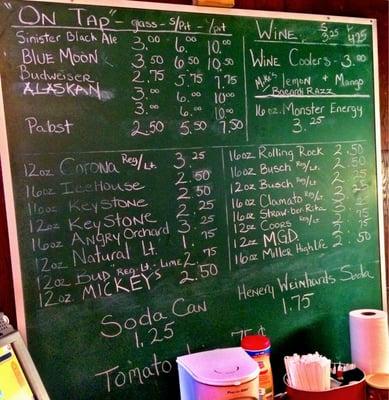 "ON TAP" - glass - S/Pit - L/Pit
Sinister Black Ale 3.00 6.00 10.00
BLUE MOON 3.50 6.50 10.50
Budweiser 2.75 5.75 7.75
ALASKAN 3.00 6.00 10.00
3.00 6.00 10.00
Pabst 2.50 5.50 7.50
WINE 3.25 4.25
WINE Coolers - 3.00
Mike's lemon + Mango
Bacardi RAZZ
16oz. Monster Energy
3.25
12oz Corona Reg/Lt. 3.25
16oz IceHouse 2.50
16oz Keystone 2.50
12oz KeyStone 2.25
16oz Angry Orchard 3.25
12oz Natural Lt. 1.75
12oz Bud Reg. Lt. Lime 2.75
12oz. MICKEYS 2.50
16oz Rolling Rock 2.50
16oz Busch Reg/Lt. 2.50
12oz Busch Reg/Lt 2.25
16oz Clamato Reg/Lt
16oz Straw-ber-Rita
12oz Coors Reg/Lt
12oz MGD
16oz Miller High Life 2.50
Soda Can
1.25
Henery Weinhards Soda
1.75
Tomato
75¢